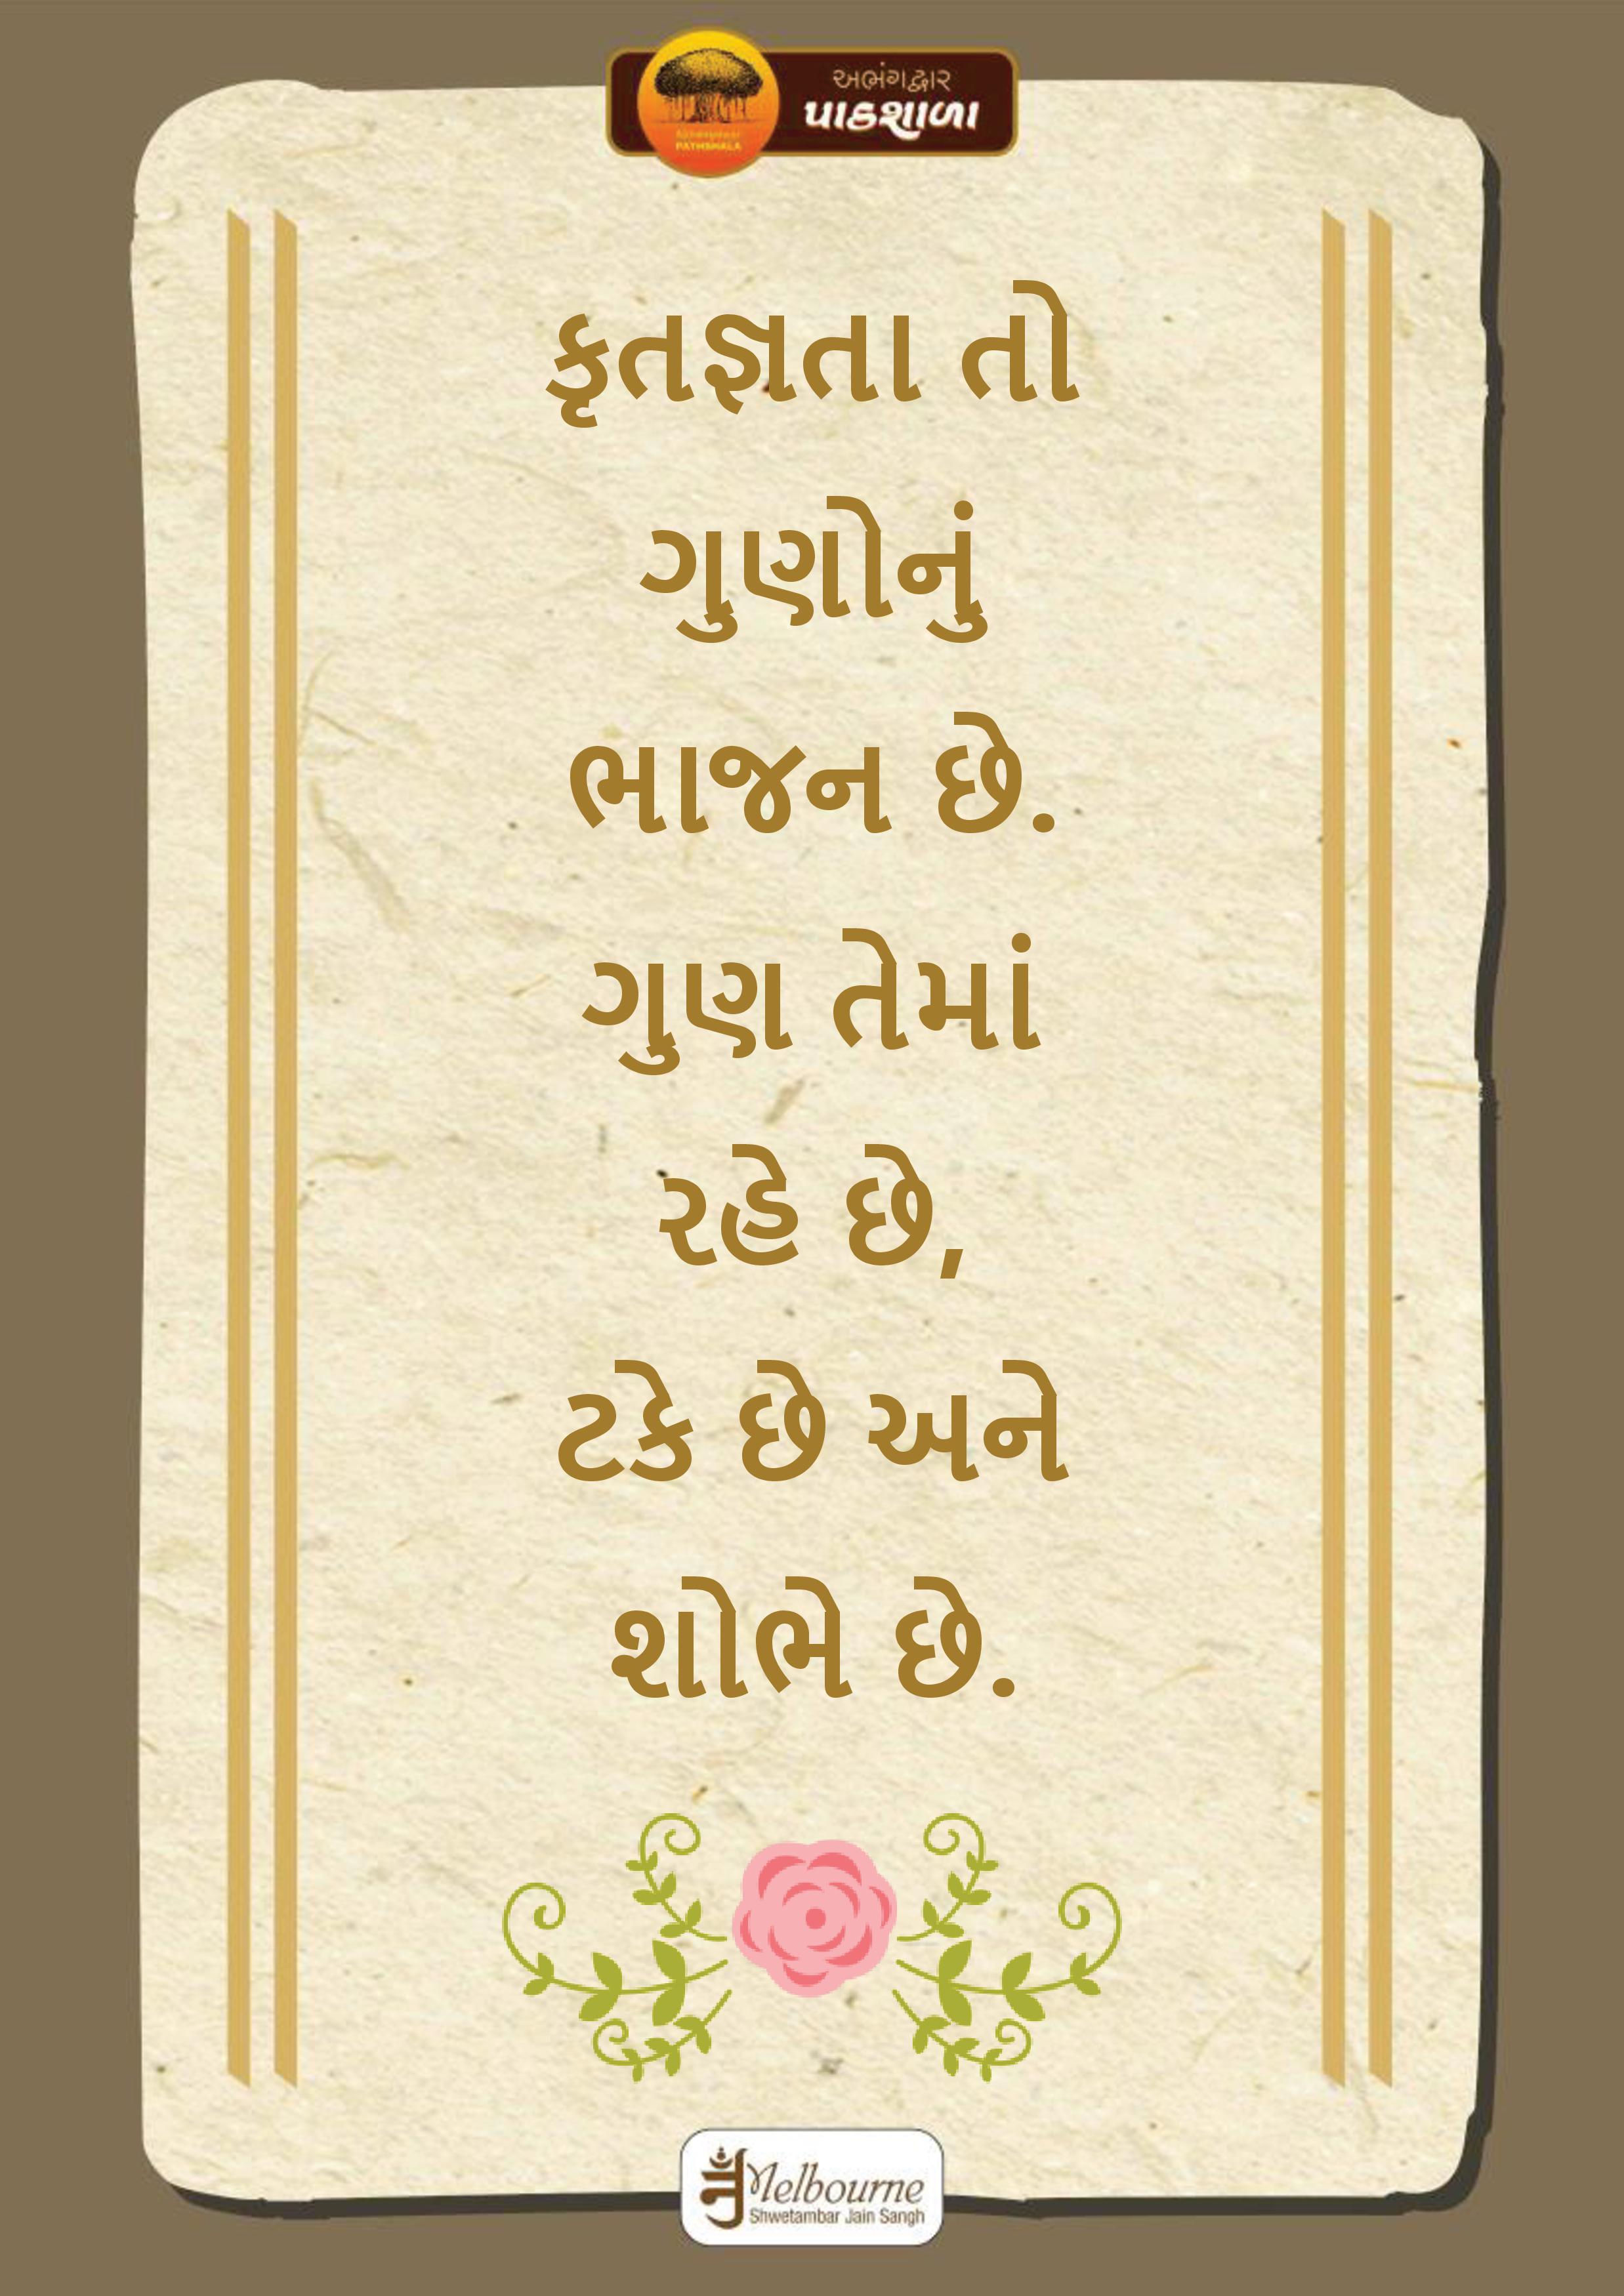 અભંગદ્વાર
પાઠશાળા
PATHSHALA
કૃતજ્ઞતા તો
ગુણોનું
ભાજન છે.
ગુણ તેમાં
રહે છે,
ટકે છે અને
શોભે છે.
Melbourne
Shwetambar Jain Sangh